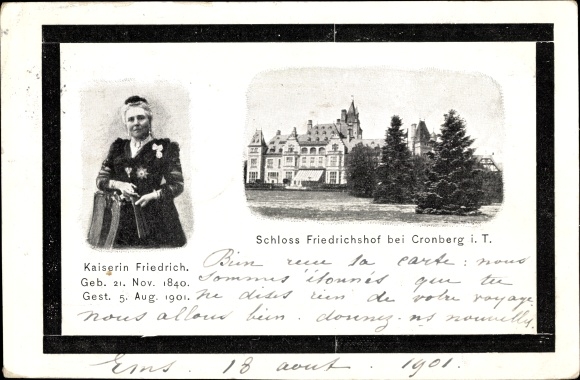 Schloss Friedrichshof bei Cronberg i. T.
Kaiserin Friedrich.
Geb. 21. Nov. 1840.
Gest. 5. Aug. 1901.
Bien reçu ta carte : nous
sommes étonnés que tu
ne dises rien de votre voyage
nous allons bien. donnez-ns nouvelles.
Ems. 18 aout. 1901.